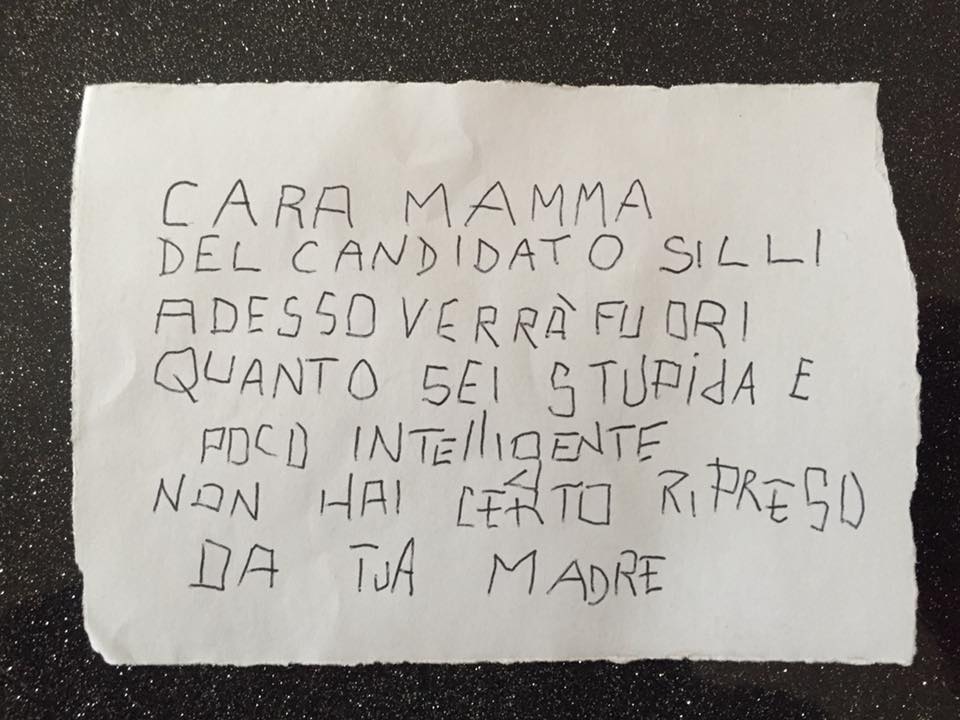 CARA MAMMA
DEL CANDIDATO SILLI
ADESSO VERRÀ FUORI
QUANTO SEI STUPIdA E
POCO INTEllIGENTE
NON HAI CERTO RIPRESO
DA TUA MADRE